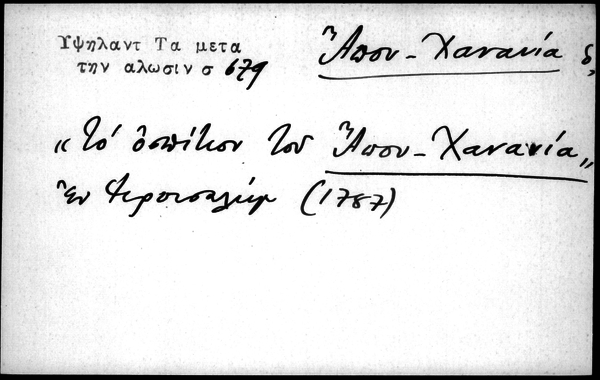 Υψηλαντ Τα μετα
την αλωσιν σ 679
Ἄπου - Χανανία δ,
„ Τό ὁσπίτιον τοῦ Ἄπου - Χανανία „
ἐν Ἱερουσαλήμ (1787)